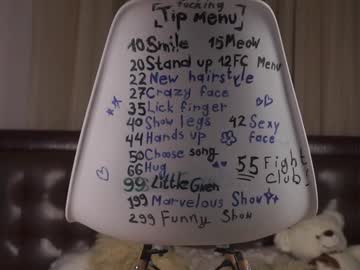 fucking
Tip Menu
10 Smile 15 Meow
20 Stand up 12 FC Menu
22 New hairstyle
27 Crazy face
35 Lick finger
40 Show legs 42 Sexy face
44 Hands up
50 Choose song
66 Hug 55 Fight Club!
99 Little Green
199 Marvelous Show
299 Funny Show